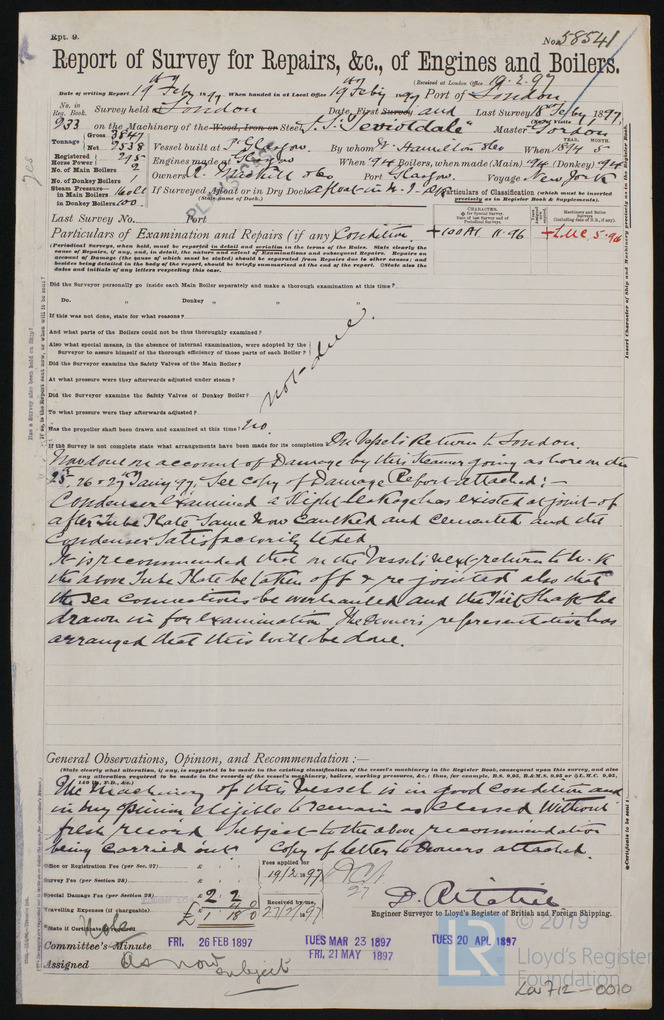 Rpt. 9.
No. 58541
Report of Survey for Repairs, &c., of Engines and Boilers.
(Received at London Office 19.2.97
Date of writing Report 19th Feby 1897 When handed in at Local Office 19th Feby 1897 Port of London
No. in Reg. Book. Survey held at London Date, First Survey and Last Survey 18th Feby 1897
933 on the Machinery of the Wood, Iron or Steel S.S. "Teviotdale" Master Gordon
Tonnage Gross 3847
Net 2538
Vessel built at P. Glasgow By whom W. Hamilton & Co When 1894 5
YEAR. MONTH.
Registered Horse Power 295
Engines made at Glasgow When '94 Boilers, when made (Main) 94 (Donkey) 94
No. of Main Boilers 2
Owners Port Glasgow. Voyage New York
No. of Donkey Boilers 1
Steam Pressure in Main Boilers 160 lbs
in Donkey Boilers 100.
If Surveyed Afloat or in Dry Dock afloat in
(State name of Dock.)
Particulars of Classification (which must be inserted precisely as in Register Book & Supplements).
Last Survey No. Port
Particulars of Examination and Repairs (if any) Condition
+100A1 11.96
+LMC 5.94
(Periodical Surveys, when held, must be reported in detail and seriatim in the terms of the Rules. State clearly the
cause of Repairs, if any, and, in detail, the nature and extent of Examinations and subsequent Repairs. Repairs on
account of Damage (the cause of which must be stated) should be separated from Repairs due to other causes; and
besides being detailed in the body of the report, should be briefly summarised at the end of the report. State also the
dates and initials of any letters respecting this case.
Did the Surveyor personally go inside each Main Boiler separately and make a thorough examination at this time?
Do. " Donkey " " "
If this was not done, state for what reasons?
And what parts of the Boilers could not be thus thoroughly examined?
Also what special means, in the absence of internal examination, were adopted by the
Surveyor to assure himself of the thorough efficiency of those parts of each Boiler?
Did the Surveyor examine the Safety Valves of the Main Boiler?
At what pressure were they afterwards adjusted under steam?
Did the Surveyor examine the Safety Valves of Donkey Boiler?
To what pressure were they afterwards adjusted?
not due.
Has the propeller shaft been drawn and examined at this time? No.
If the Survey is not complete state what arrangements have been made for its completion On Vessels Return to London.
Now done on account of Damage by this Steamer going ashore on the
25th, 26 & 27th Jany 97. See copy of Damage Report attached:-
Condenser Examined a Slight leakage has existed at joint of
after Tube Plate Same Now Caulked and cemented and the
Condenser Satisfactorily tested
It is recommended that on the Vessels next return to U.K
the above Tube Plate be taken off & re jointed also that
the Sea Connections be overhauled and the Tail Shaft be
drawn in for Examination The Owners representative has
arranged that this will be done.
General Observations, Opinion, and Recommendation:—
(State clearly what alteration, if any, is suggested to be made in the existing classification of the vessel's machinery in the Register Book, consequent upon this survey, and also
any alteration required to be made in the records of the vessel's machinery, boilers, working pressures, &c.: thus, for example, B.S. 9,95, B.&M.S. 9,95 or L.M.C. 9,95,
The Machinery of this Vessel is in good condition and
in my opinion eligible to remain as Classed Without
fresh record Subject to the above recommendation
being carried out. Copy of letter to Owners attached.
Office or Registration Fee (per Sec. 27)... £
Survey Fee (per Section 28)... £
Special Damage Fee (per Section 28) £ 2 2
Travelling Expenses (if chargeable). £ 1 18 0
Fees applied for
19/2 1897
Received by me,
27/2/1897
D. Ritchie
Engineer Surveyor to Lloyd's Register of British and Foreign Shipping.
State if Certificate is required
Committee's Minute FRI. 26 FEB 1897 TUES MAR 23 1897 TUES 20 APL 1897
FRI. 21 MAY 1897
Assigned As now
subject
© 2019
LR
Lloyd's Register
Foundation
Lon 712-0010